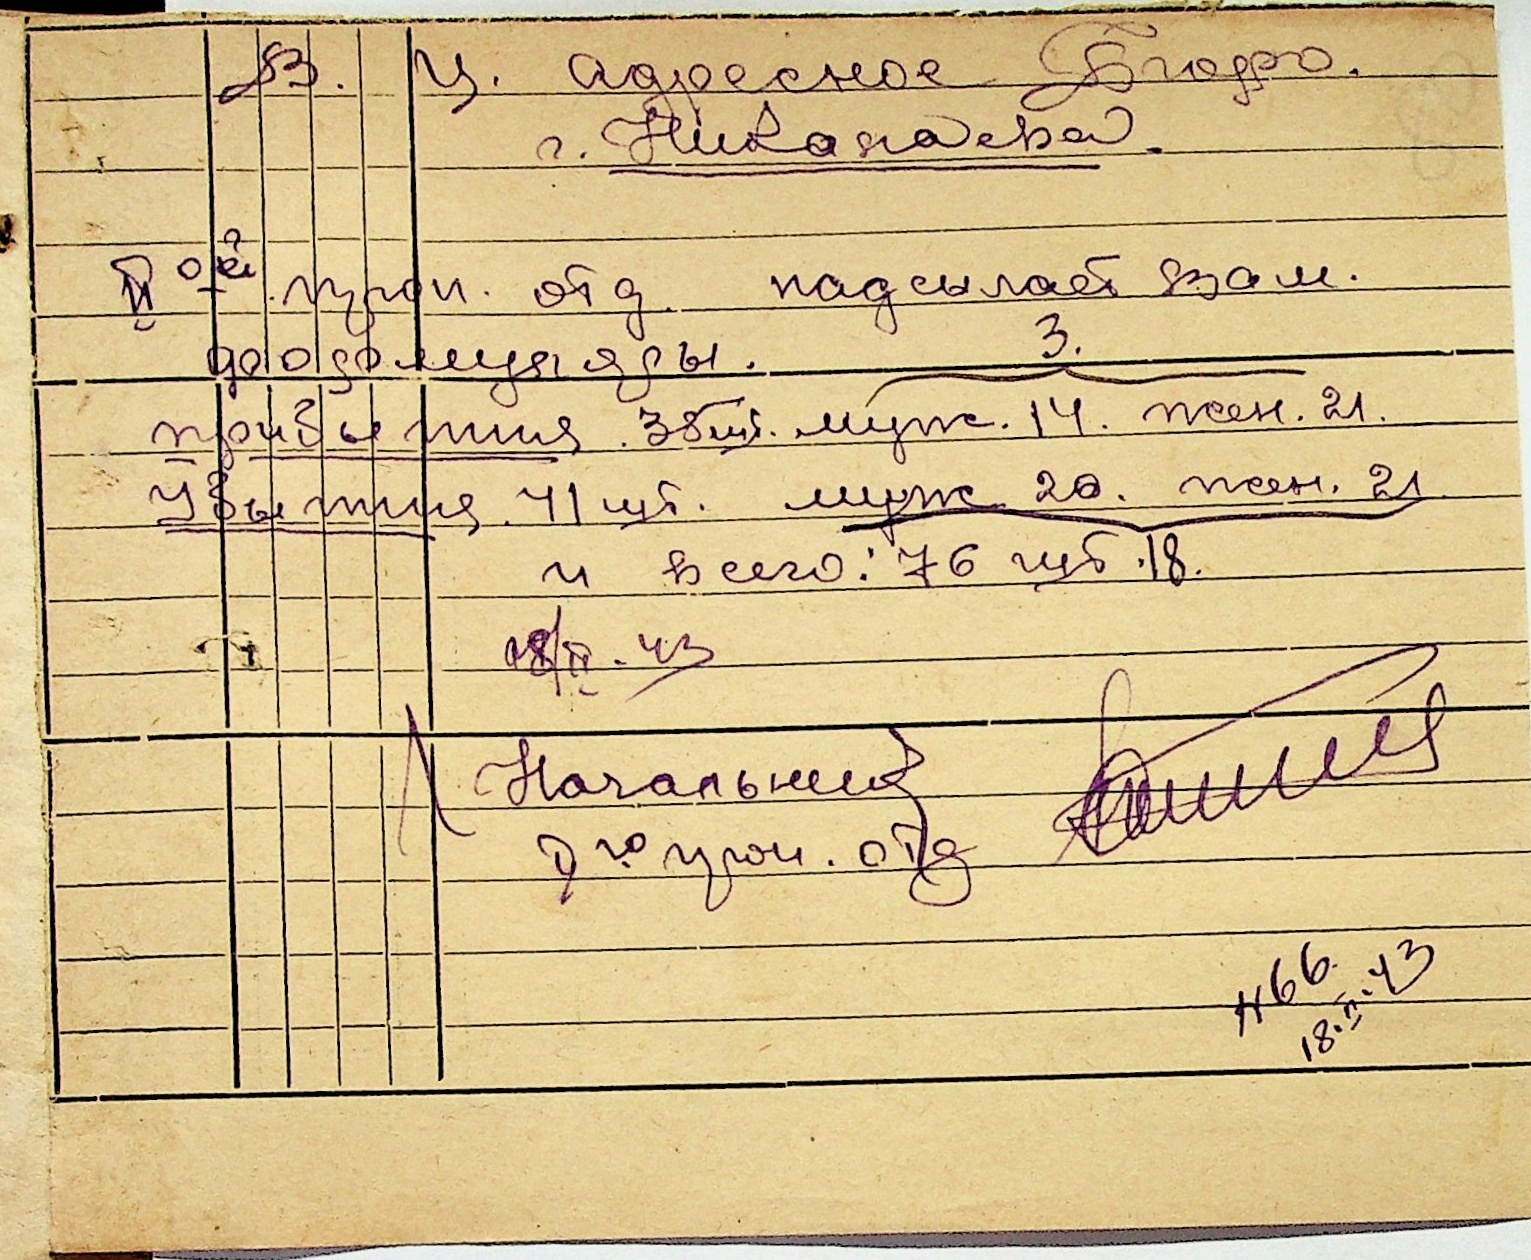 В. Ц. Адресное Бюро.
г. Николаева.
II ой прои. отд. надсылает вам.
до формуляры.
3.
прибытия. 35 шт. муж. 14. жен. 21.
Убытия. 41 шт. муж 20. жен. 21
и всего: 76 шт. 18.
18/II. 43
Начальник
II го прои. отд
N 66.
18.II.43